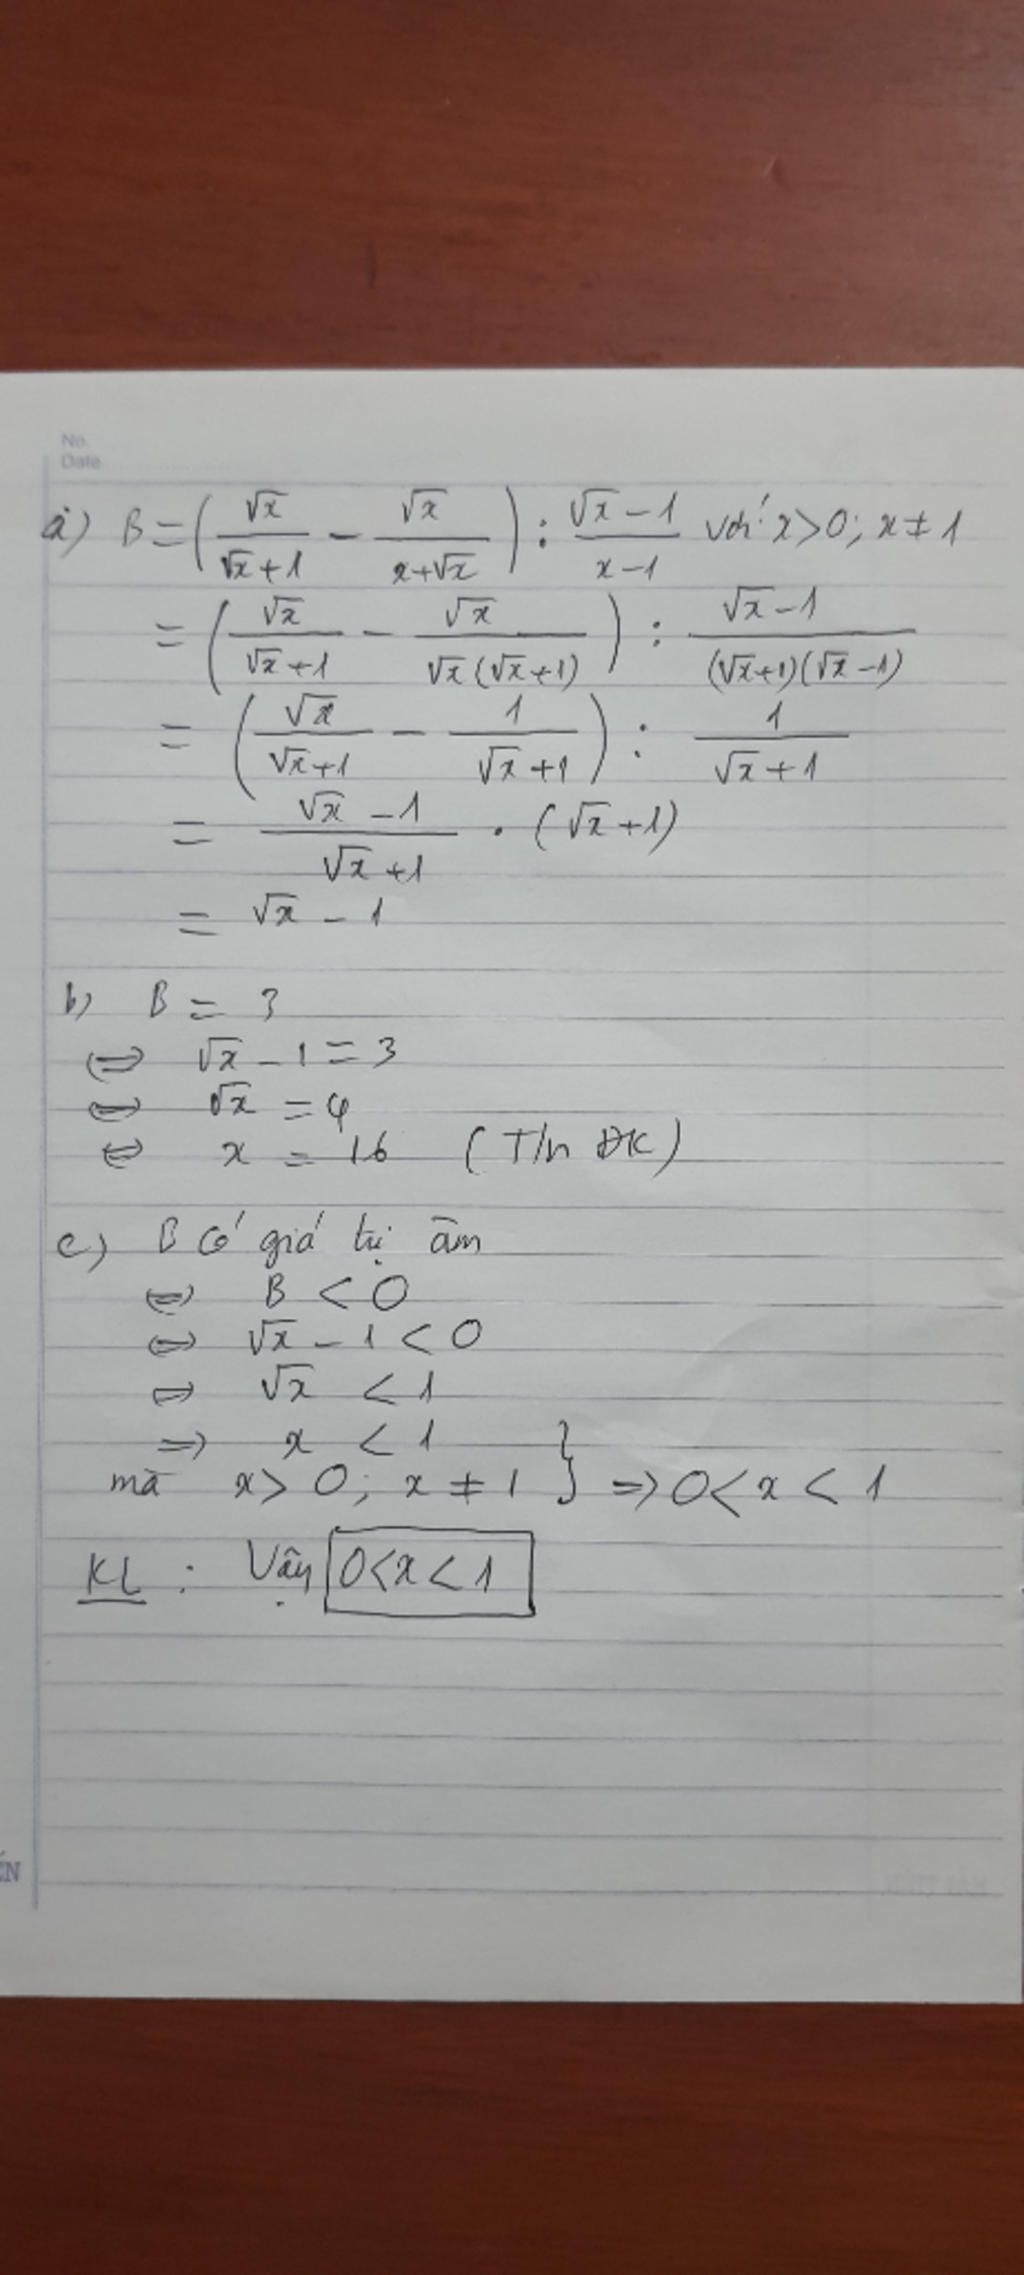 No.
Date
a) B = (√x/(√x+1) - √x/(x+√x)) : (√x-1)/(x-1) với x>0; x≠1
= (√x/(√x+1) - √x/(√x(√x+1))) : (√x-1)/((√x+1)(√x-1))
= (√x/(√x+1) - 1/(√x+1)) : 1/(√x+1)
= (√x-1)/(√x+1) . (√x+1)
= √x - 1
b) B = 3
⇔ √x - 1 = 3
⇔ √x = 4
⇔ x = 16 (T/m ĐK)
c) B có giá trị âm
⇔ B < 0
⇔ √x - 1 < 0
⇔ √x < 1
⇒ x < 1
mà x > 0; x ≠ 1 } ⇒ 0 < x < 1
KL : Vậy 0<x<1